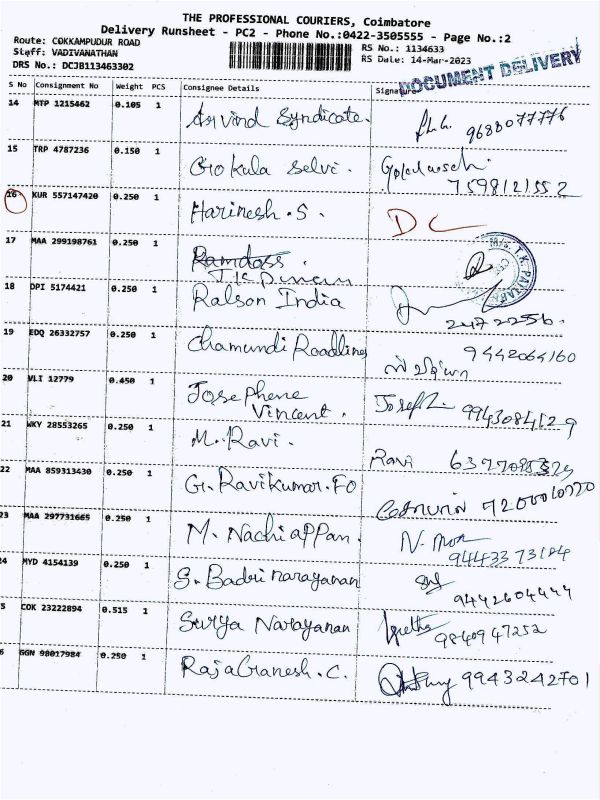 THE PROFESSIONAL COURIERS, Coimbatore
Delivery Runsheet - PC2 - Phone No.:0422-3505555 - Page No.:2
Route: COKKAMPUDUR ROAD
Staff: VADIVANATHAN
DRS No.: DCJB113463302
RS No.: 1134633
RS Date: 14-Mar-2023
DOCUMENT DELIVERY
S No Consignment No Weight PCS Consignee Details Signature
14 MTP 1215462 0.105 1 Arvind Syndicate. 9688077776
15 TRP 4787236 0.150 1 Gokula Selvi. 7598121552
16 KUR 557147420 0.250 1 Harinesh.S. DC
17 MAA 299198761 0.250 1 Ramdass.
M/s. T.K.
18 DPI 5174421 0.250 1 Ralson India
19 EDQ 26332757 0.250 1 Chamundi Roadlines 9442064160
20 VLI 12779 0.450 1 Josephene Vincent. Joseph. 9943084129
21 WKY 28553265 0.250 1 M. Ravi. Ravi
22 MAA 859313430 0.250 1 G. Ravikumar.FO
23 MAA 297731665 0.250 1 M. Nachiappan. 9443373184
24 MYD 4154139 0.250 1 S. Badri narayanan 9442604444
5 COK 23222894 0.515 1 Surya Narayanan 9840947252
6 GGN 98017984 0.250 1 RajaGanesh.C. 9943242701